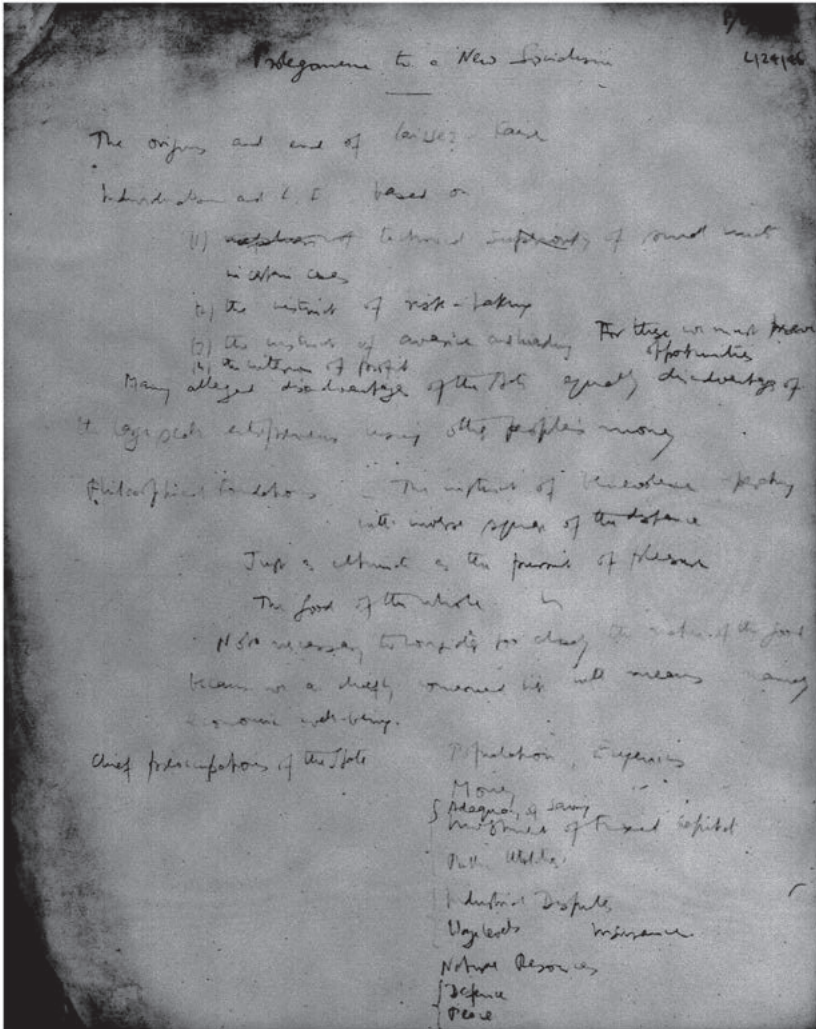 L/24/46
Prolegomena to a New Socialism
The origins and end of laissez-faire
Individualism and L.F. based on
(1) technical superiority of small unit
in certain cases
(2) the instinct of risk-taking
(3) the instincts of avarice and For these we must
opportunities
(4) the criterion of profit
Many alleged disadvantages of the State equally disadvantages of
entrepreneurs using other people's money
Philosophical Foundations The instinct of benevolence
inverse square of the distance
Just as ultimate as the pursuit of pleasure
The good of the whole
Not necessary to consider too closely the nature of the good
because we are chiefly concerned with means namely
economic well-being.
Chief preoccupations of the State Population, Eugenics
Money
Adequacy of saving
Investment of Fixed Capital
Public Utilities
Industrial Disputes
Wage levels Insurance
Natural Resources
Defence
Peace